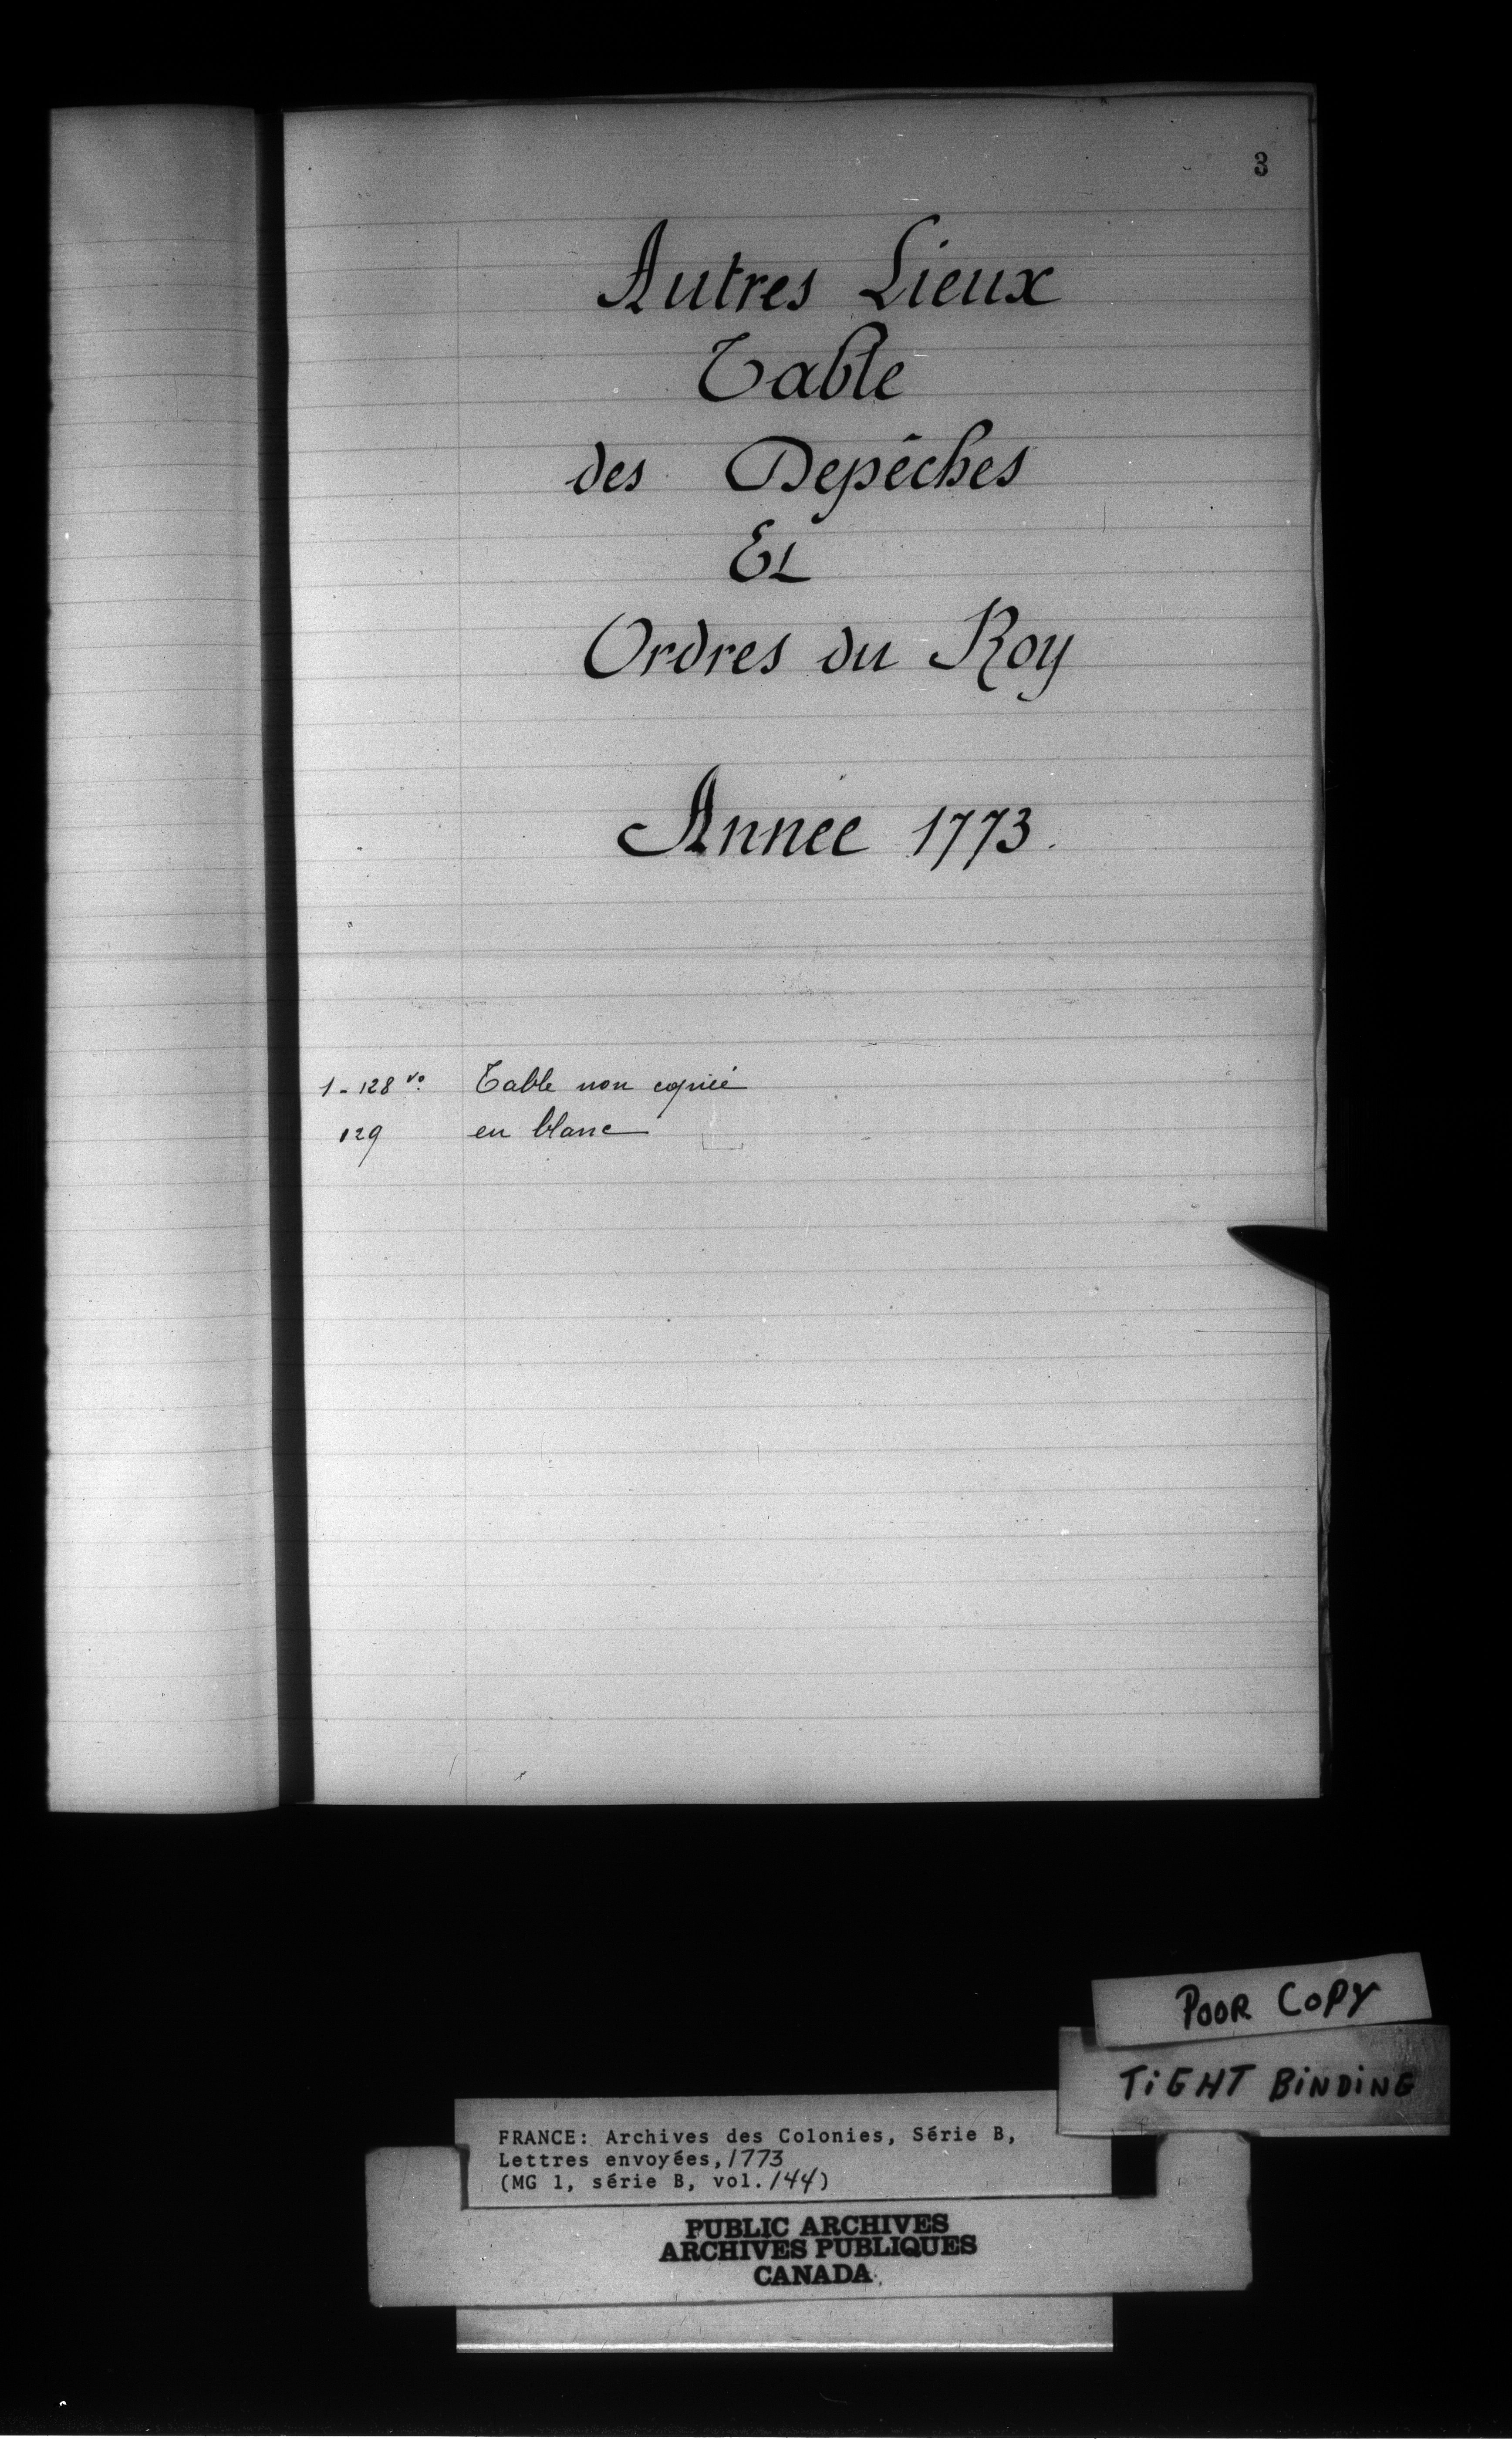 3
Autres Lieux
Table
des Depêches
Et
Ordres du Roy
Année 1773.
1 - 128 vo. Table non copiée
129 en blanc
POOR COPY
TiGHT BiNDiNG
FRANCE: Archives des Colonies, Série B,
Lettres envoyées, 1773
(MG 1, série B, vol. 144)
PUBLIC ARCHIVES
ARCHIVES PUBLIQUES
CANADA